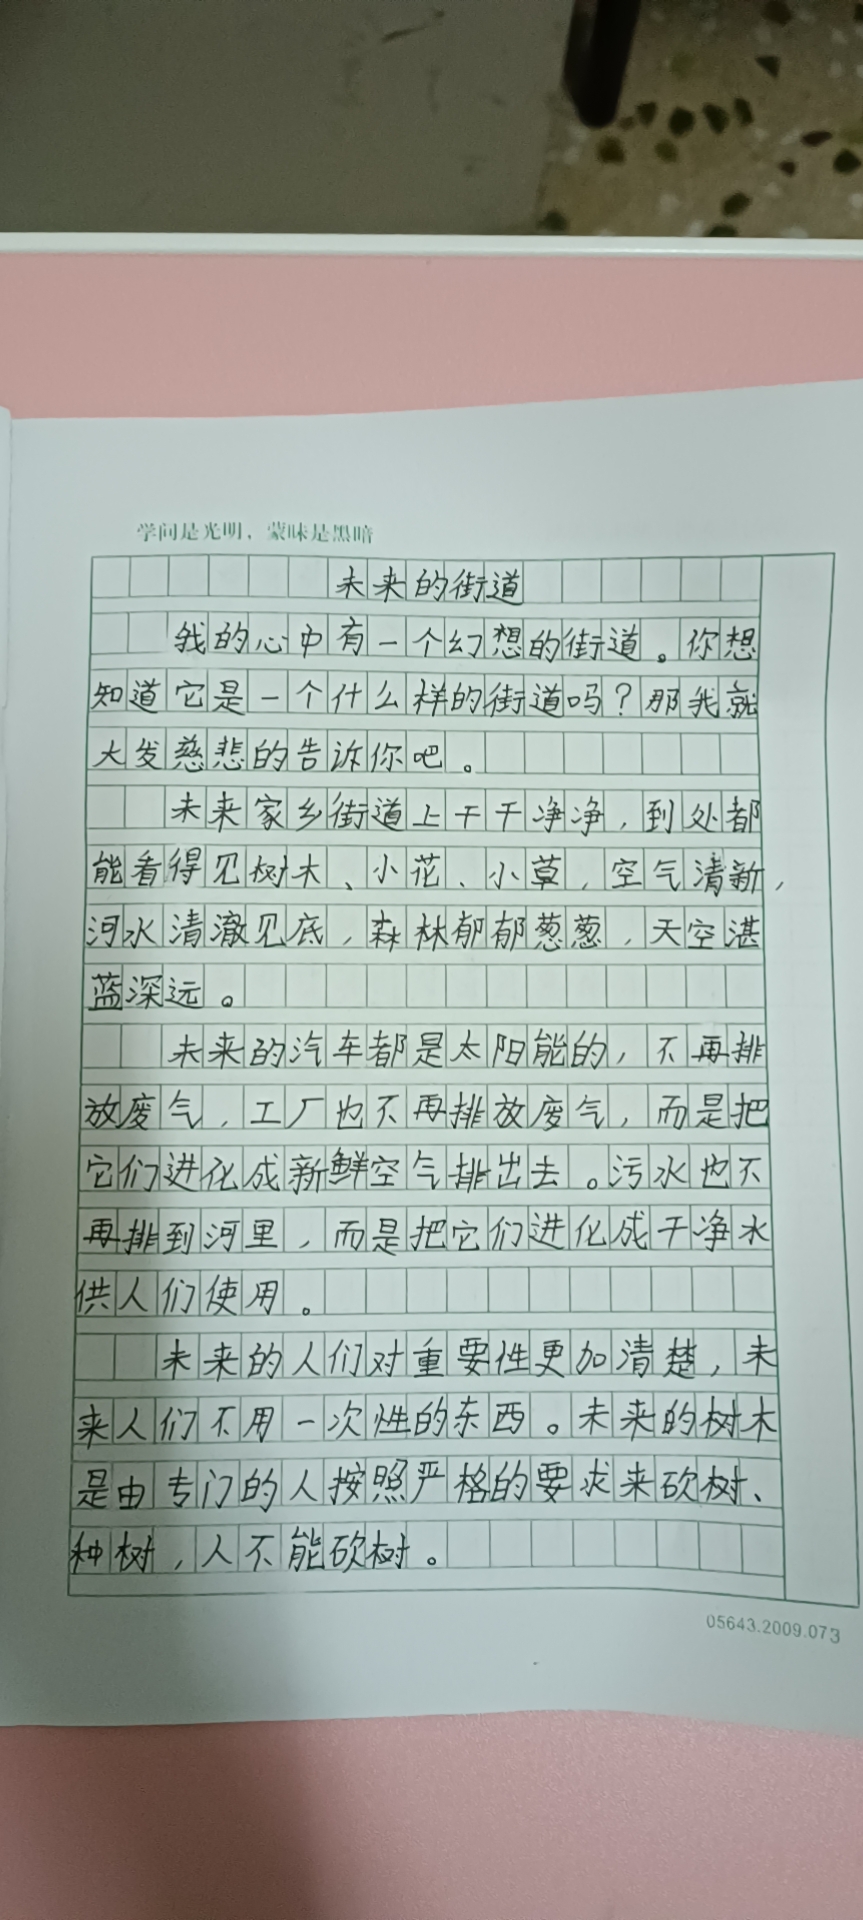 学问是光明，蒙昧是黑暗
未来的街道
我的心中有一个幻想的街道。你想
知道它是一个什么样的街道吗？那我就
大发慈悲的告诉你吧。
未来家乡街道上干干净净，到处都
能看得见树木、小花、小草，空气清新，
河水清澈见底，森林郁郁葱葱，天空湛
蓝深远。
未来的汽车都是太阳能的，不再排
放废气，工厂也不再排放废气，而是把
它们进化成新鲜空气排出去。污水也不
再排到河里，而是把它们进化成干净水
供人们使用。
未来的人们对重要性更加清楚，未
来人们不用一次性的东西。未来的树木
是由专门的人按照严格的要求来砍树、
种树，人不能砍树。
05643.2009.073